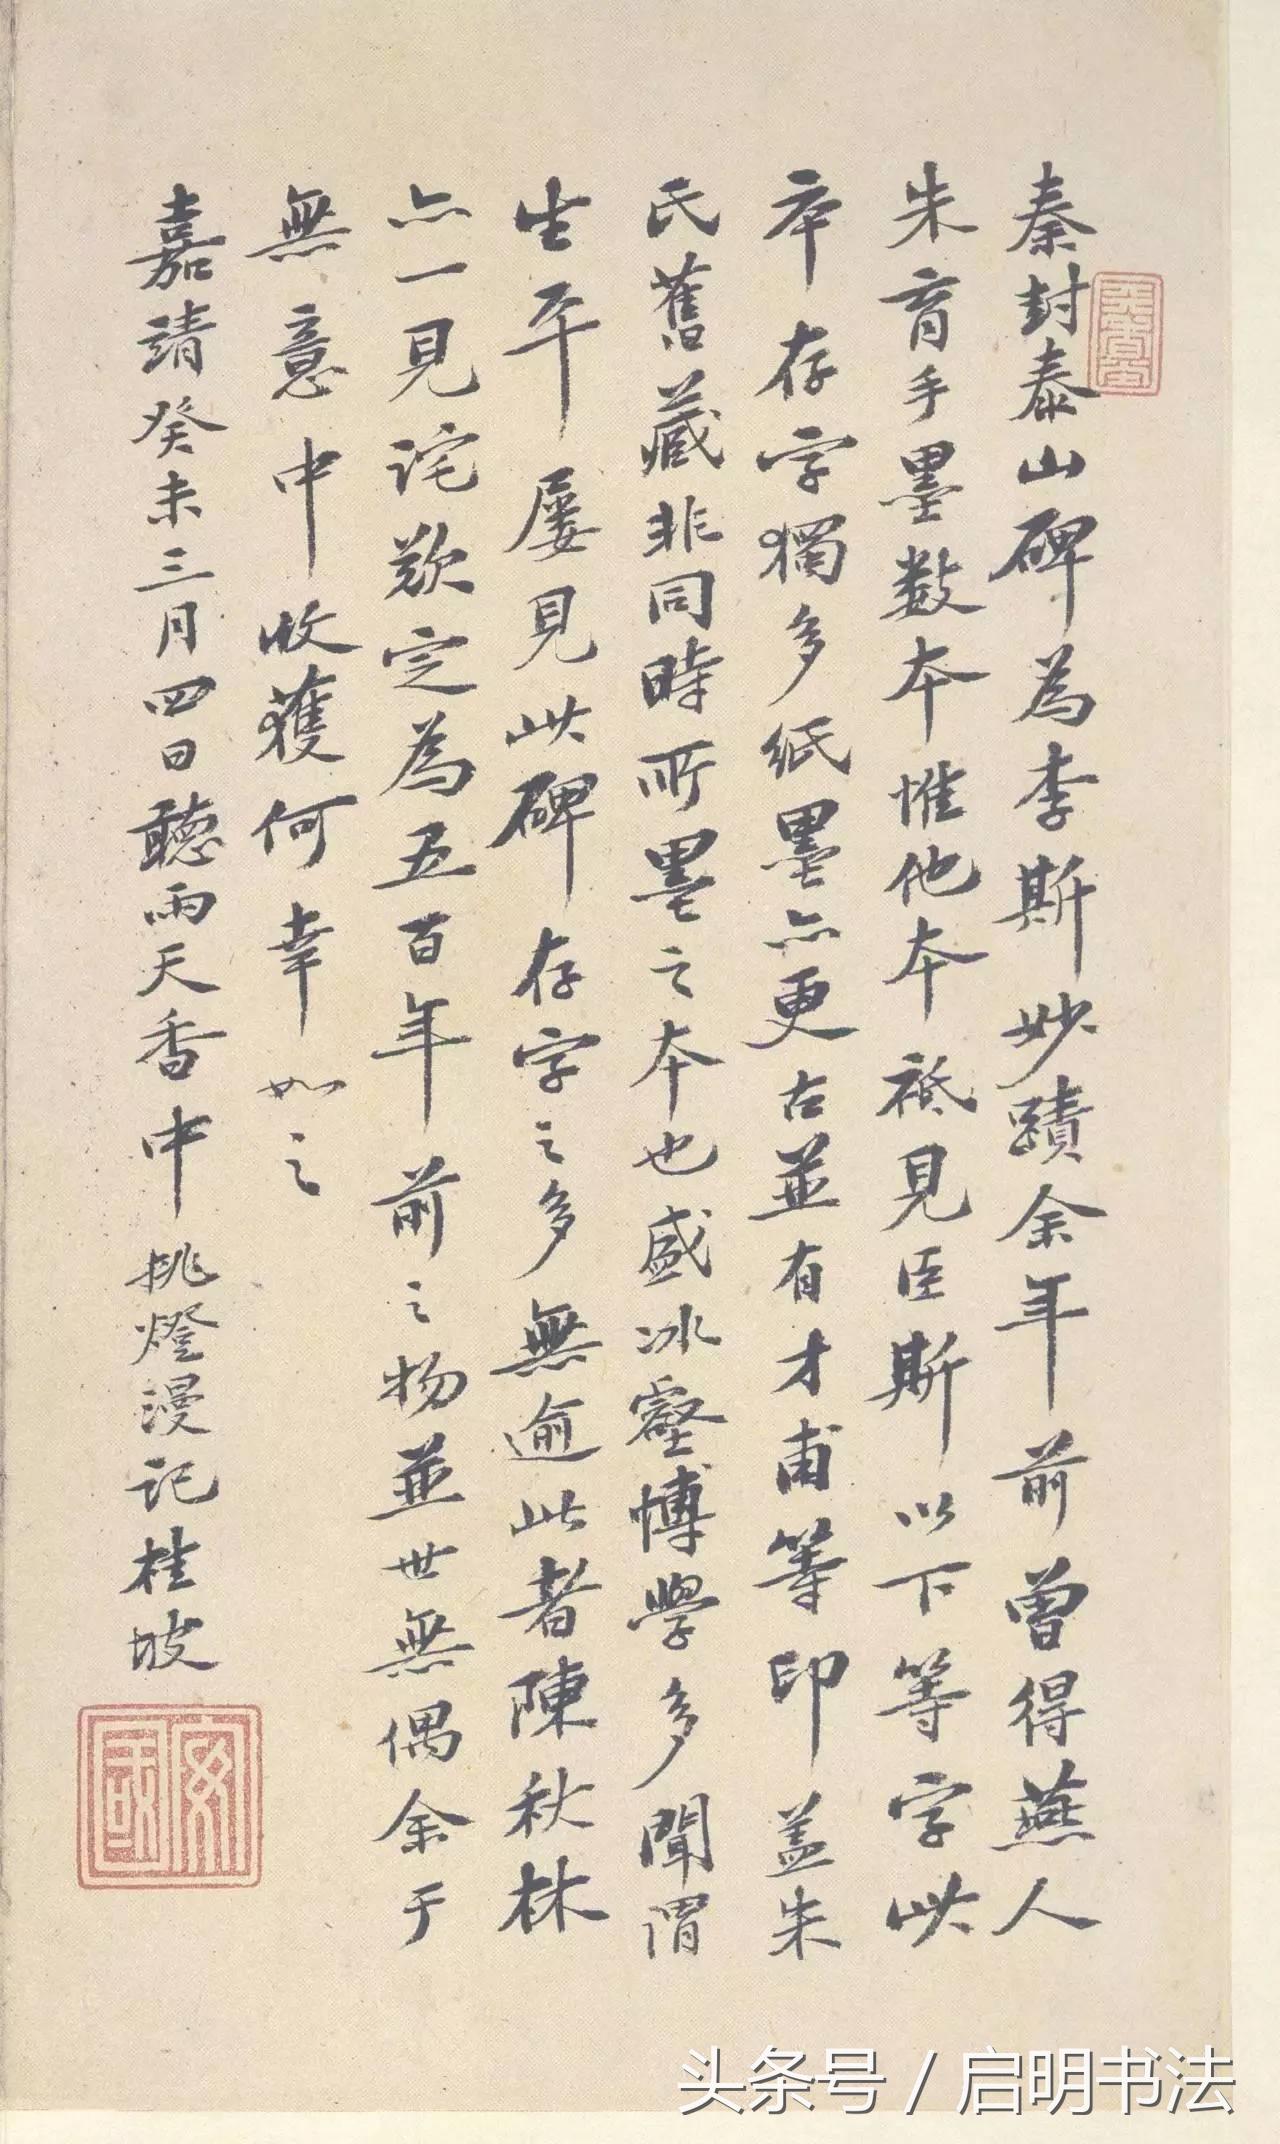 秦封泰山碑為李斯妙蹟余年前曾得燕人
朱育手墨數本惟他本祗見臣斯以下等字此
本存字獨多紙墨亦更古並有才甫等印盖朱
氏舊藏非同時所墨之本也盛冰壑博學多聞謂
生平屡見此碑存字之多無逾此者陳秋林
亦一見詫欵定為五百年前之物並世無偶余于
無意中收獲何幸如之
嘉靖癸未三月四日聽雨天香中挑燈漫記桂坡
天香堂
安國
头条号 / 启明书法